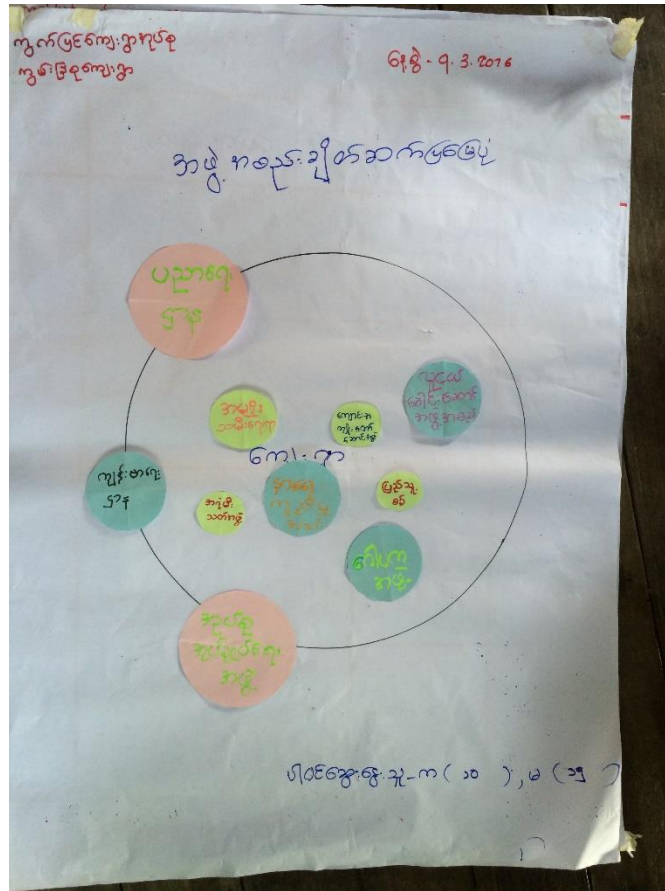 ကွက်ပြင်ကျေးရွာအုပ်စု
ကျေးရွာ
နေ့စွဲ - ၅. ၃. 2016
အဖွဲ့အစည်းချိတ်ဆက်ပြမြေပုံ
ပညာရေး
ဌာန
အမျိုး
သမီးရေးရာ
ကျောင်းအ
ကျိုးတော်
ဆောင်အဖွဲ့
လူငယ်
ခေါင်းဆောင်
အဖွဲ့အစည်း
ကျေးရွာ
ကျန်းမာရေး
ဌာန
အငုံမီး
သတ်အဖွဲ့
နာရေး
ကူညီမှု
ပြည်သူ့
စစ်
ဂေါပက
အဖွဲ့
အုပ်စု
အုပ်ချုပ်ရေး
အဖွဲ့
ပါဝင်ဆွေးနွေးသူ - က ( ၁၀ ) , မ ( ၁၅ )